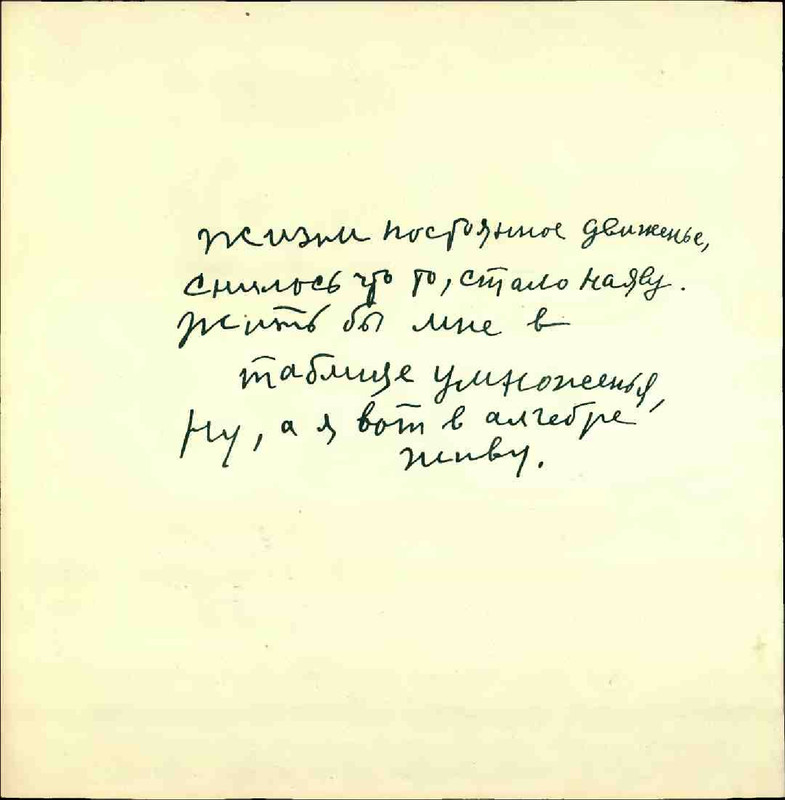 жизни постоянное движенье,
снилось что то, стало наяву.
жить бы мне в
таблице умноженья,
Ну, а я вот в алгебре
живу.